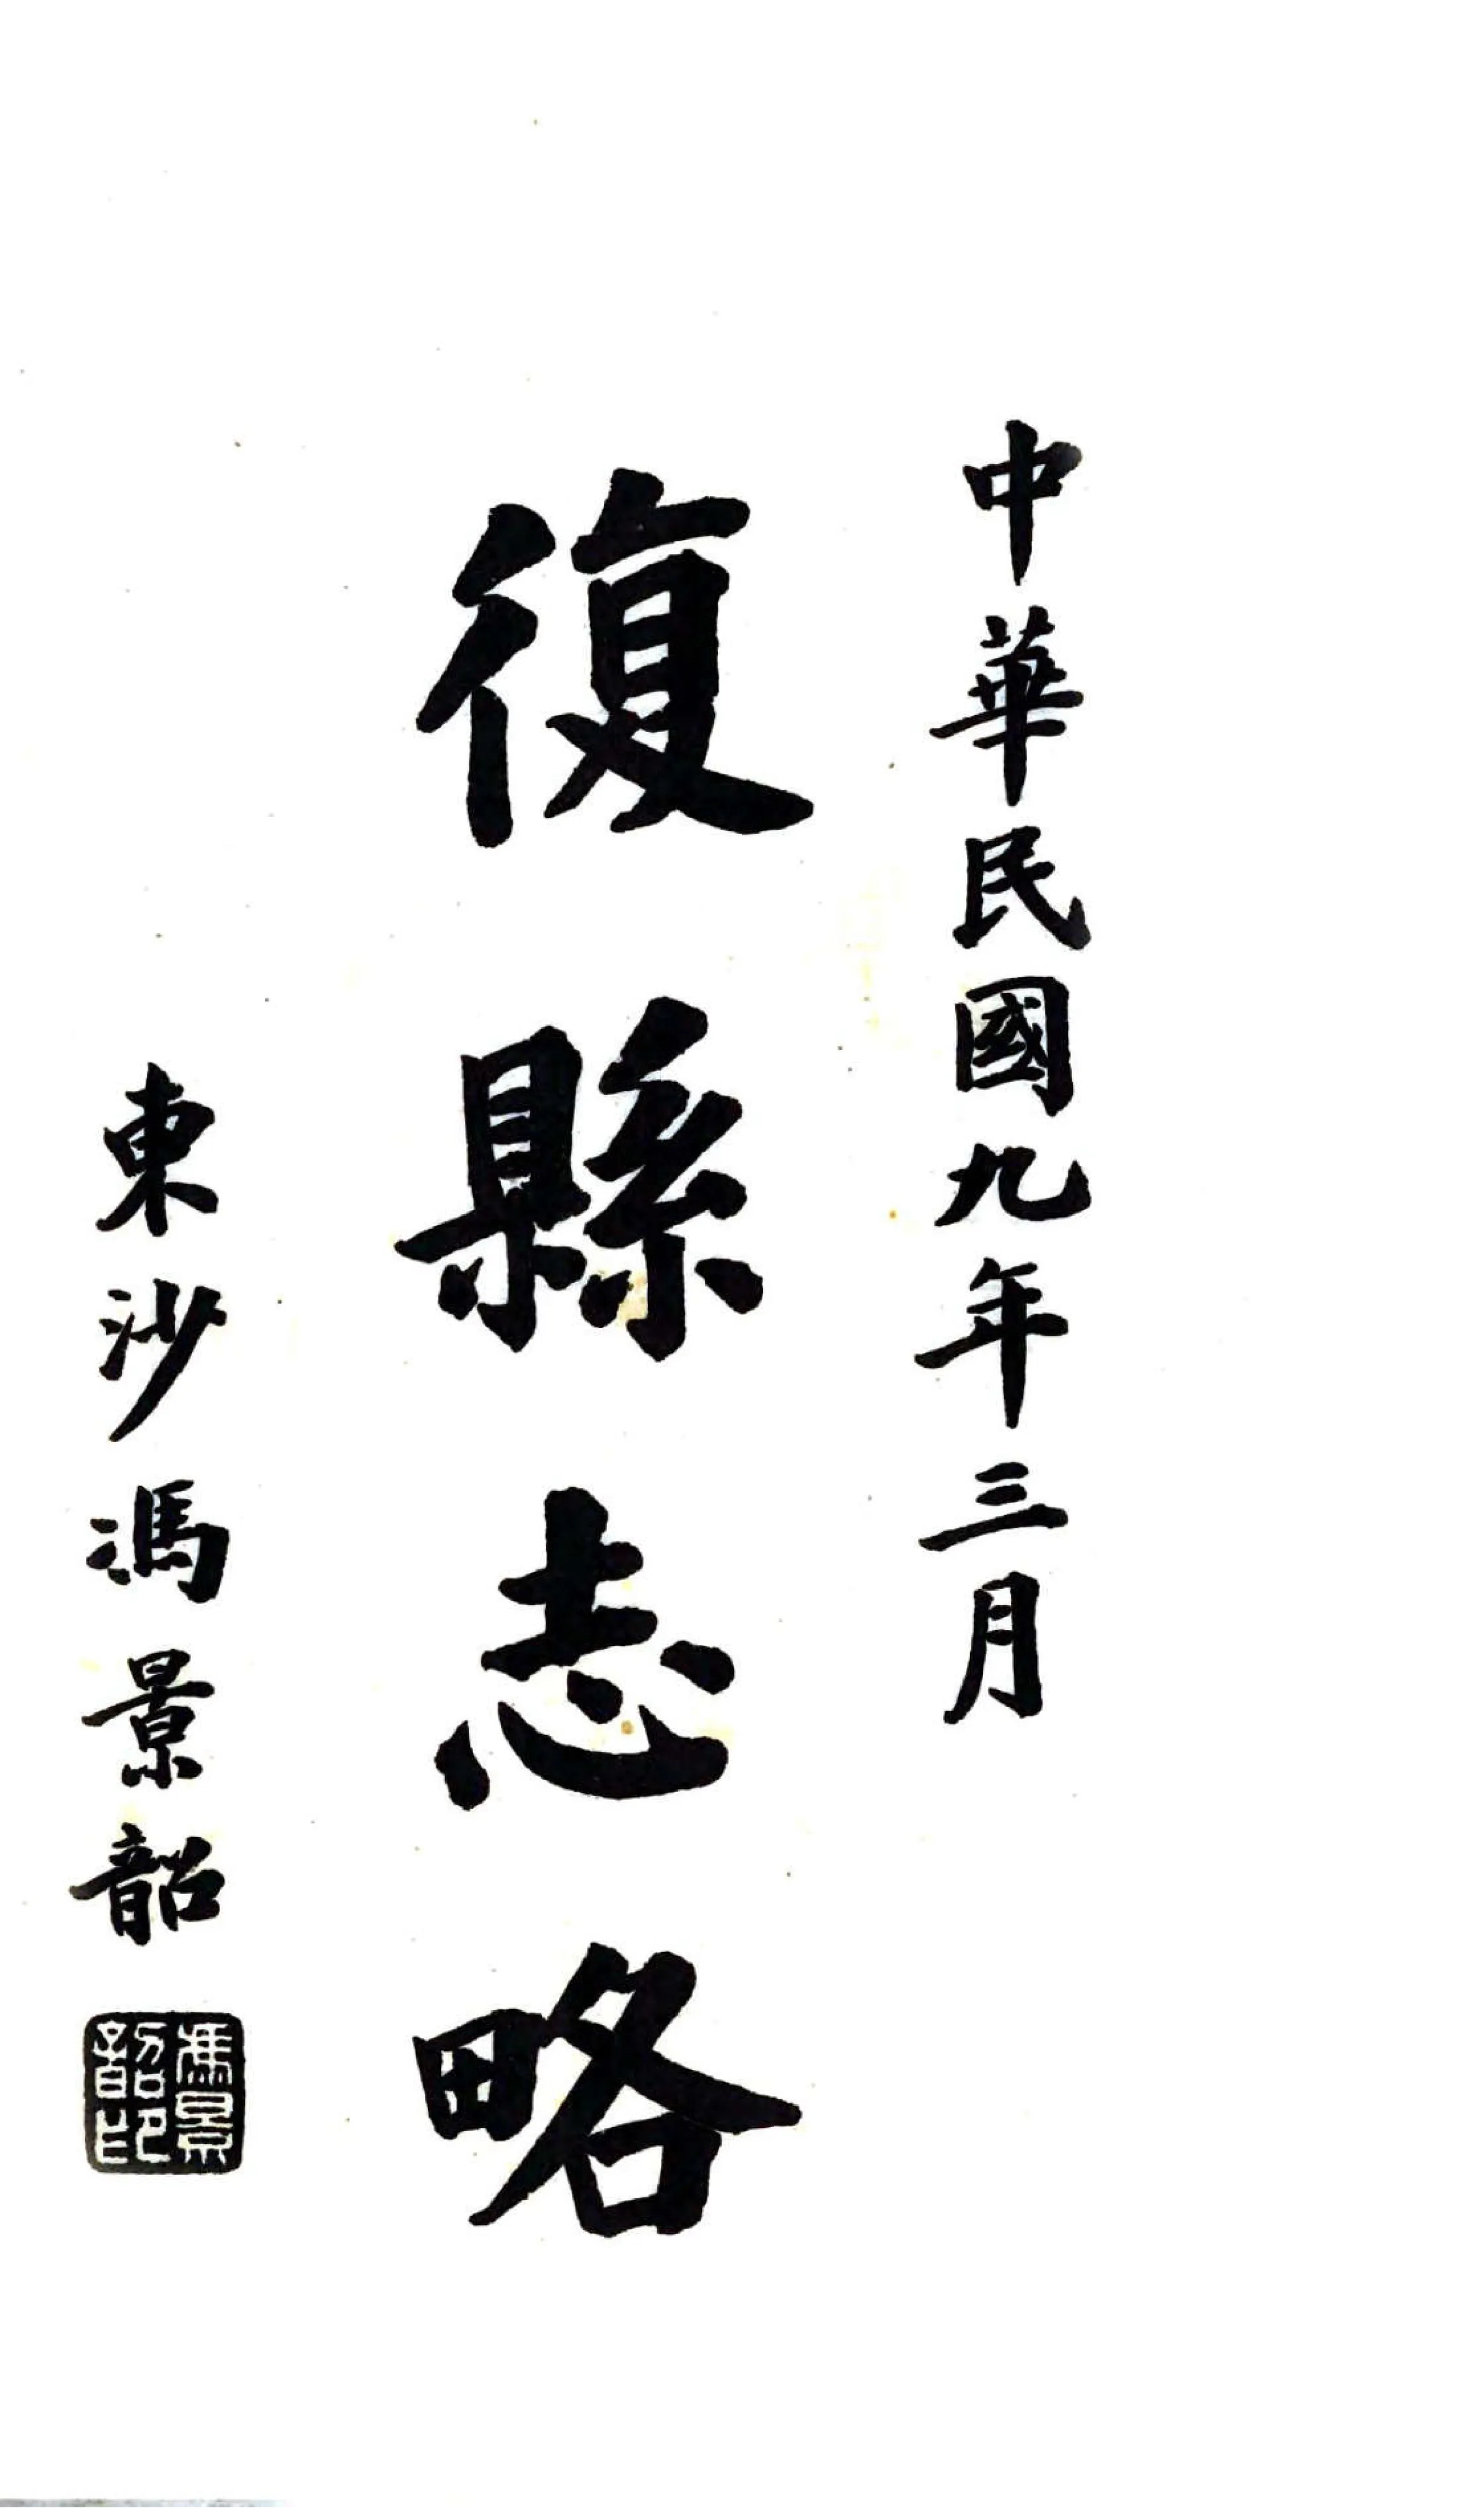 中華民國九年三月
復縣志略
東沙馮景韶
馮景韶印